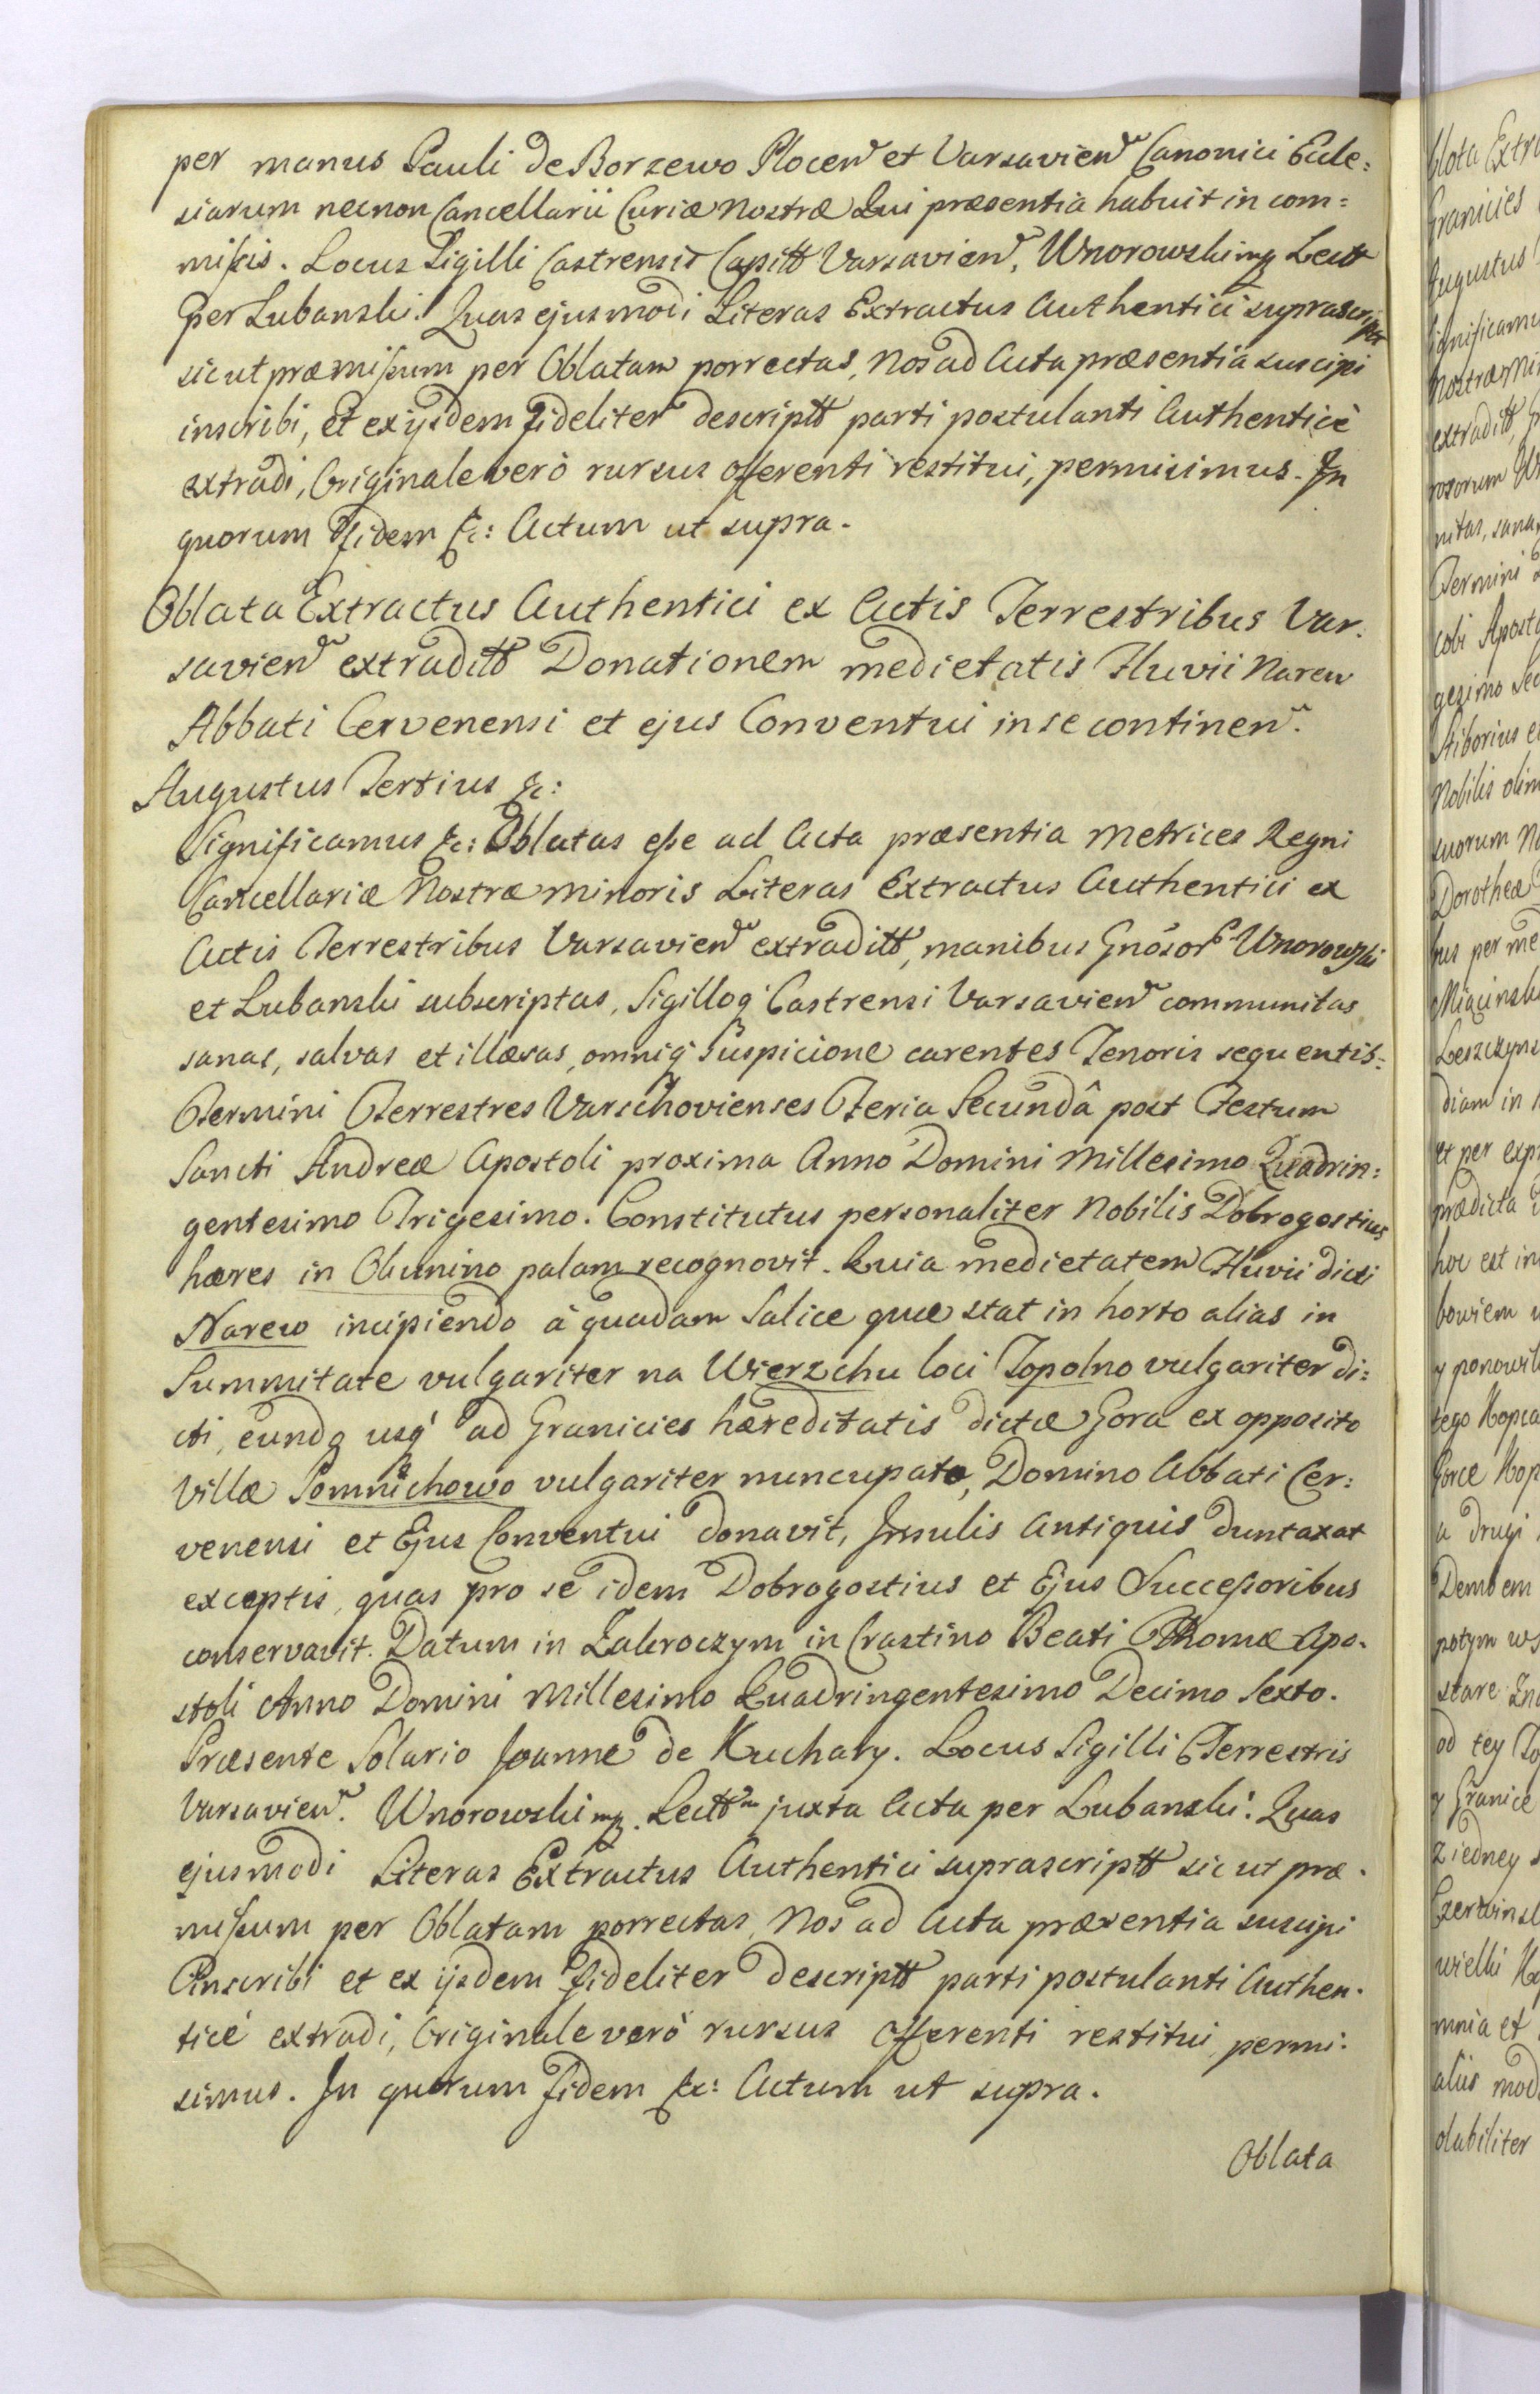 per manus Pauli de Borzewo Plocen et Varsavien Canonici Eccle:
siarum necnon Cancellarii Curiæ Nostræ Qui præsentia habuit in com=
missis. Locus Sigilli Castrensis Capitt Varsavien. Wnorowski mp Lectt
per Lubanski. Quas ejusmodi Literas Extractus Authentici suprascriptt
sicut præmissum per Oblatam porrectas, Nos ad Acta præsentia suscipi
inscribi, et ex ijsdem fideliter descriptt parti postulanti Authenticè
extradi, Originale verò rursus offerenti restitui, permisimus. In
quorum fidem &c: Actum ut supra.
Oblata Extractus Authentici ex Actis Terrestribus Var.
savien extraditt Donationem medietatis Fluvii Narew
Abbati Cervenensi et ejus Conventui in se continen.
Augustus Tertius &c:
Significamus &c: Oblatas esse ad Acta præsentia Metrices Regni
Cancellariæ Nostræ Minoris Literas Extractus Authentici ex
Actis Terrestribus Varsavien extraditt, manibus Gnosor Wnorowski
et Lubanski subscriptas, Sigilloq Castrensi Varsavien communitas
sanas, salvas et illæsas, omniq Suspicione carentes Tenoris sequentis:
Termini Terrestres Varschovienses Feria Secundâ post Festum
Sancti Andreæ Apostoli proxima Anno Domini Millesimo Quadrin:
gentesimo Trigesimo. Constitutus personaliter Nobilis Dobrogostius
hæres in Olunino palam recognovit. Quia medietatem Fluvii dicti
Narew incipiendo à quadam Salice quæ stat in horto alias in
Summitate vulgariter na Wierzchu loci Topolno vulgariter di:
cti, eundo usq ad Granicies hæreditatis dictæ Gora ex opposito
Villæ Pomnichowo vulgariter nuncupatæ, Domino Abbati Cer:
venensi et Ejus Conventui donavit, Insulis Antiquis duntaxat
exceptis, quas pro se idem Dobrogostius et Ejus Successoribus
conservavit. Datum in Zakroczym in Crastino Beati Thomæ Apo.
stoli Anno Domini Millesimo Quadringentesimo Decimo Sexto.
Præsente Solario Joanne de Kuchary. Locus Sigilli Terrestris
Varsavien. Wnorowski mp. Lectt juxta Acta per Lubanski. Quas
ejusmodi Literas Extractus Authentici suprascriptt sicut præ.
missum per Oblatam porrectas, Nos ad Acta præsentia suscipi
Inscribi et ex ijsdem fideliter descriptt parti postulanti Authen.
ticè extradi, Originale verò rursus Offerenti restitui, permi.
simus. In quorum fidem &c: Actum ut supra.
Oblata